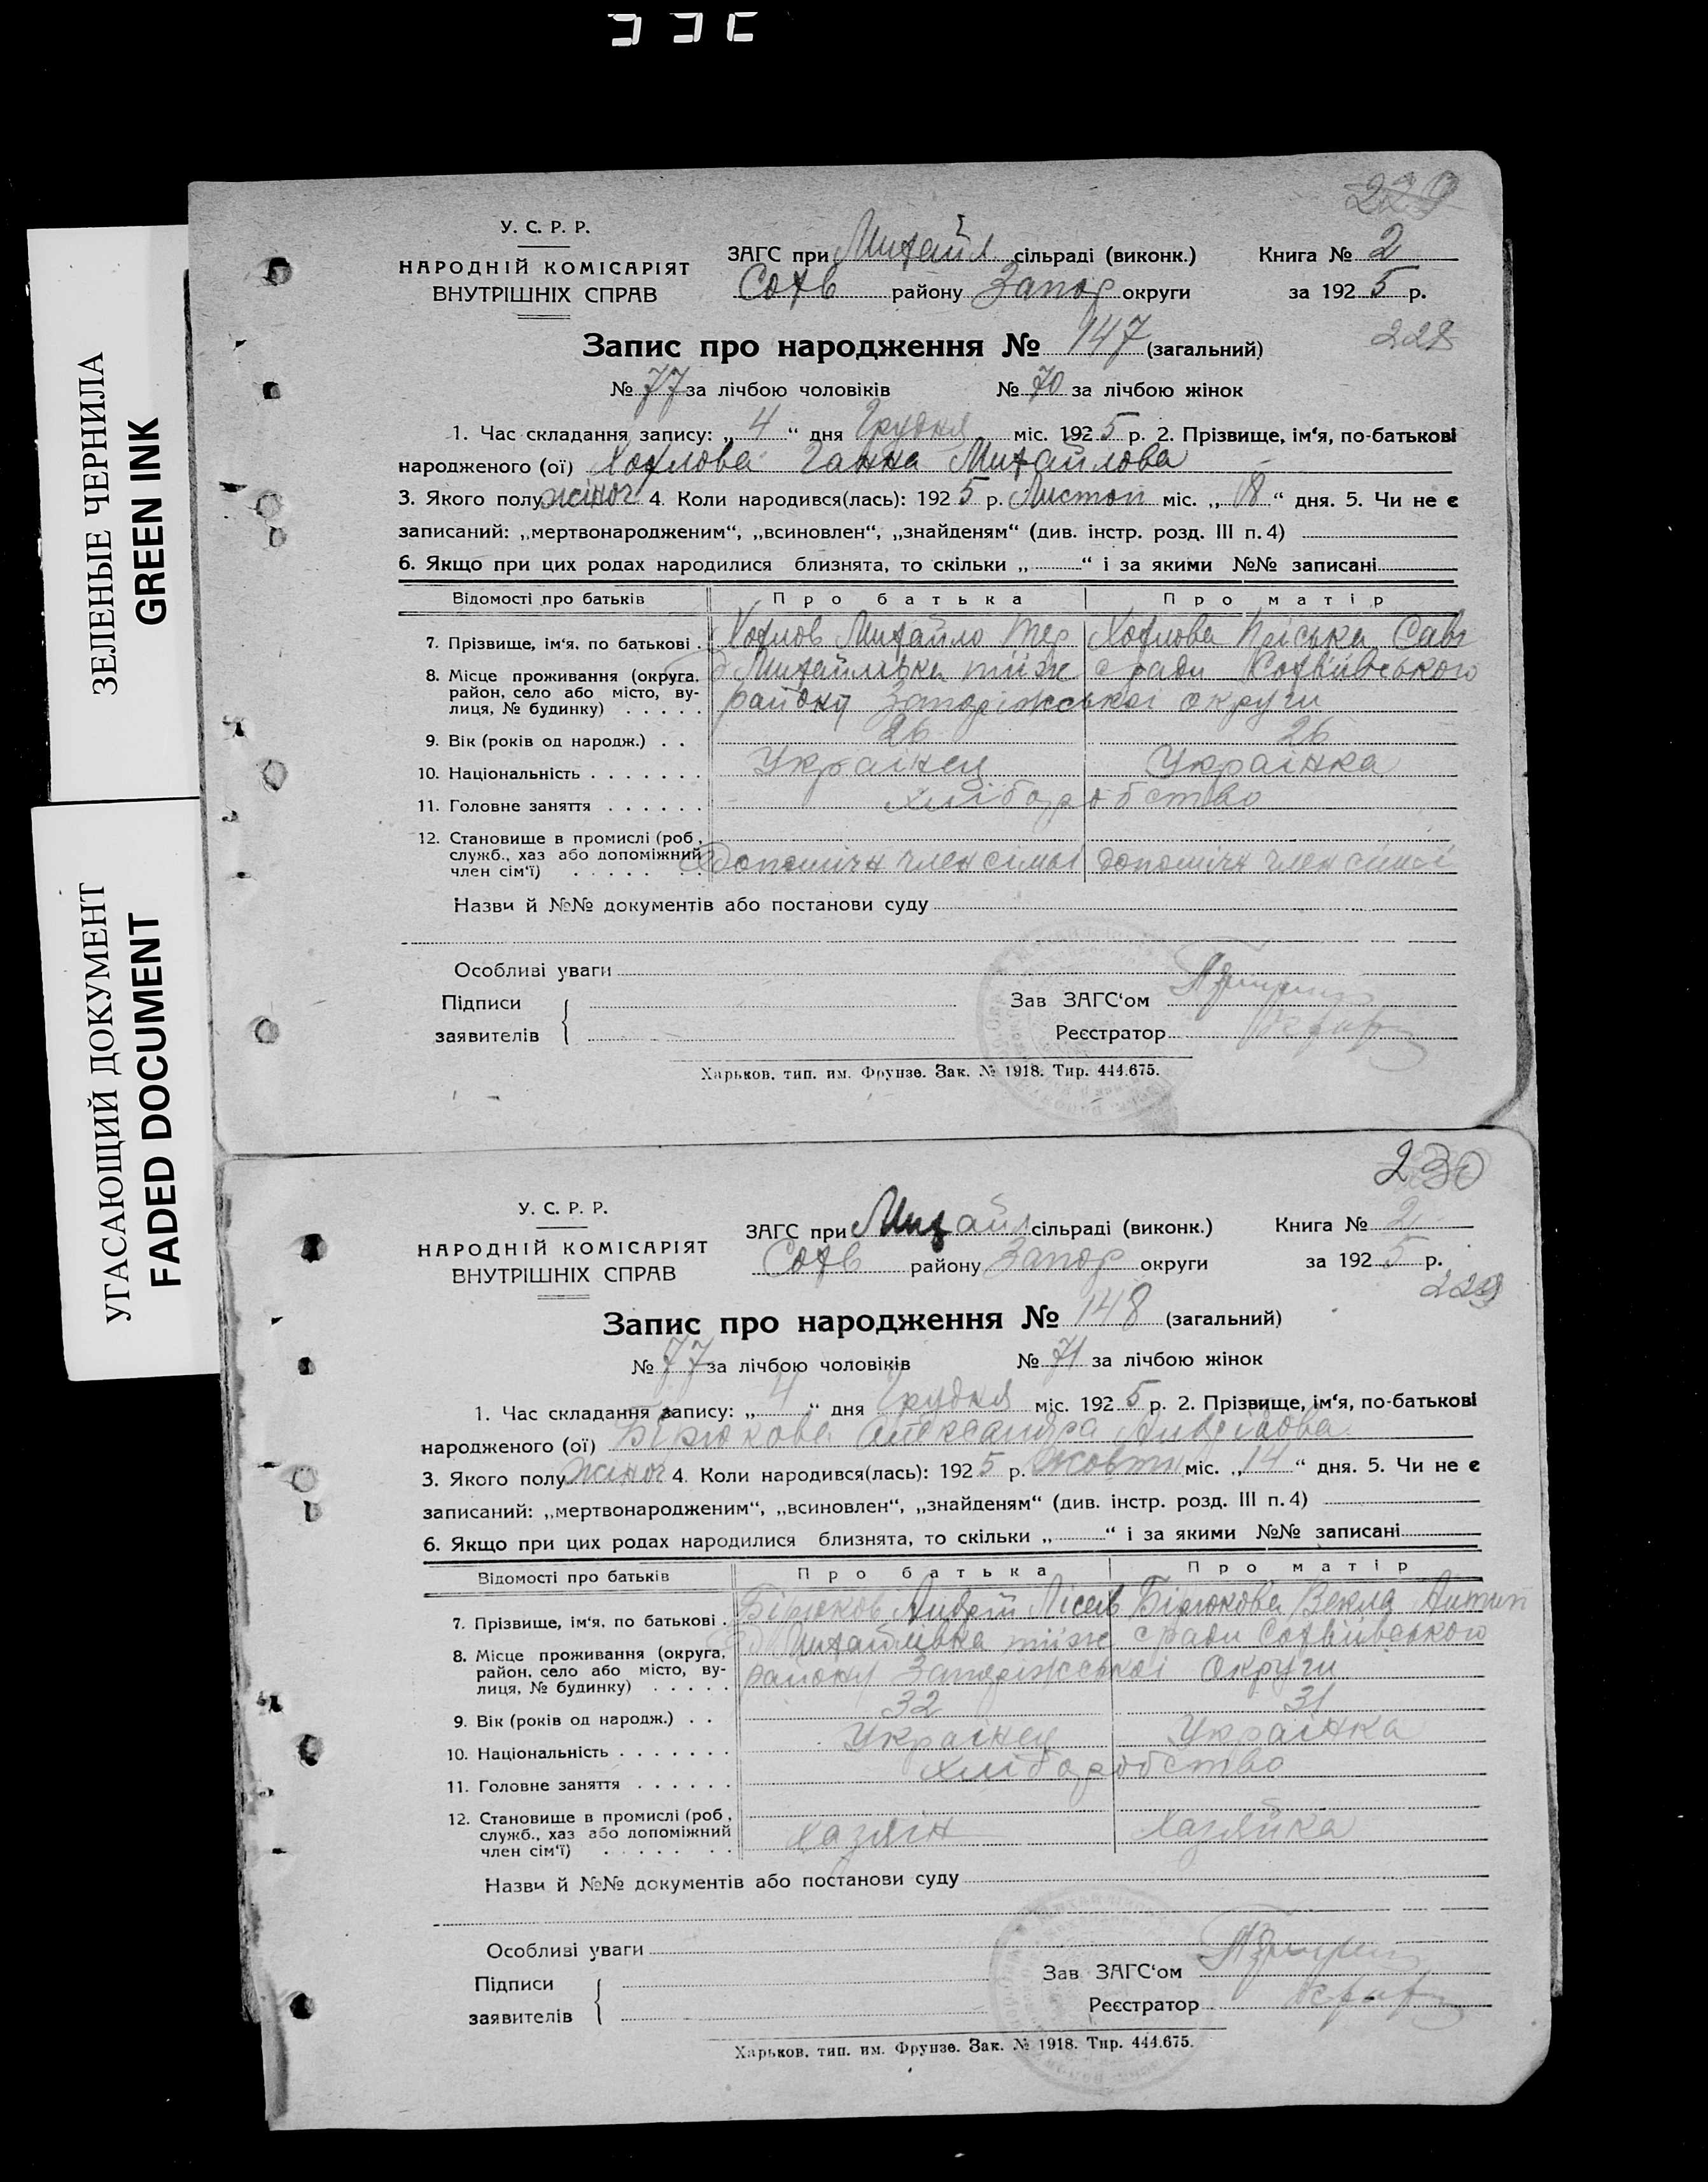 ЗЕЛЕНЫЕ ЧЕРНИЛА
GREEN INK
УГАСАЮЩИЙ ДОКУМЕНТ
FADED DOCUMENT
229
У. С. Р. Р.
НАРОДНІЙ КОМІСАРІЯТ
ВНУТРІШНІХ СПРАВ
ЗАГС при Михайл сільраді (виконк.) Книга № 2
Софв району Запор округи за 1925 р.
Запис про народження № 147 (загальний) 228
№ 77 за лічбою чоловіків № 70 за лічбою жінок
1. Час складання запису: „4“ дня Грудня міс. 1925 р. 2. Прізвище, ім‘я, по-батькові
народженого (ої) Хохлова Ганна Михайлова
3. Якого полу жіноч 4. Коли народився(лась): 1925 р. Листоп міс. „18“ дня. 5. Чи не є
записаний: „мертвонародженим“, „всиновлен“, „знайденям“ (див. інстр. розд. III п. 4)
6. Якщо при цих родах народилися близнята, то скільки „ “ і за якими №№ записані
Відомості про батьків Про батька Про матір
7. Прізвище, ім‘я, по батькові . Хохлов Михайло Тер Хохлова Пріська Сав
8. Місце проживання (округа, Михайлівка тіїж сради Софвіївського
район, село або місто, ву- району Запоріжської округи
лиця, № будинку) . . . . .
9. Вік (років од народж.) . . 26 26
10. Національність . . . . . . . Українец Українка
11. Головне заняття . . . . . . хліборобство
12. Становище в промислі (роб.,
служб., хаз або допоміжний допоміжн член сімьї допоміжн член сімьї
член сім‘ї) . . . . . . .
Назви й №№ документів або постанови суду
Особливі уваги
Підписи Зав ЗАГС‘ом
заявителів Реєстратор
Харьков, тип. им. Фрунзе. Зак. № 1918. Тир. 444.675.
230
У. С. Р. Р.
НАРОДНІЙ КОМІСАРІЯТ
ВНУТРІШНІХ СПРАВ
ЗАГС при Михайл сільраді (виконк.) Книга № 2
Софв району Запор округи за 1925 р.
229
Запис про народження № 148 (загальний)
№ 77 за лічбою чоловіків № 71 за лічбою жінок
1. Час складання запису: „4“ дня Грудня міс. 1925 р. 2. Прізвище, ім‘я, по-батькові
народженого (ої) Бірюкова Александра Андріївова
3. Якого полу жіноч 4. Коли народився(лась): 1925 р. Жовтн міс. „14“ дня. 5. Чи не є
записаний: „мертвонародженим“, „всиновлен“, „знайденям“ (див. інстр. розд. III п. 4)
6. Якщо при цих родах народилися близнята, то скільки „ “ і за якими №№ записані
Відомості про батьків Про батька Про матір
7. Прізвище, ім‘я, по батькові . Бірюков Андрій Лісеїв Бірюкова Векла Антип
8. Місце проживання (округа, Михайлівка тіїж сради Софвіївського
район, село або місто, ву- району Запоріжської Округи
лиця, № будинку) . . . . .
9. Вік (років од народж.) . . 32 31
10. Національність . . . . . . . Українец Українка
11. Головне заняття . . . . . . хліборобство
12. Становище в промислі (роб.,
служб., хаз або допоміжний Хазяїн Хазяйка
член сім‘ї) . . . . . . .
Назви й №№ документів або постанови суду
Особливі уваги
Підписи Зав ЗАГС‘ом
заявителів Реєстратор
Харьков, тип. им. Фрунзе. Зак. № 1918. Тир. 444.675.